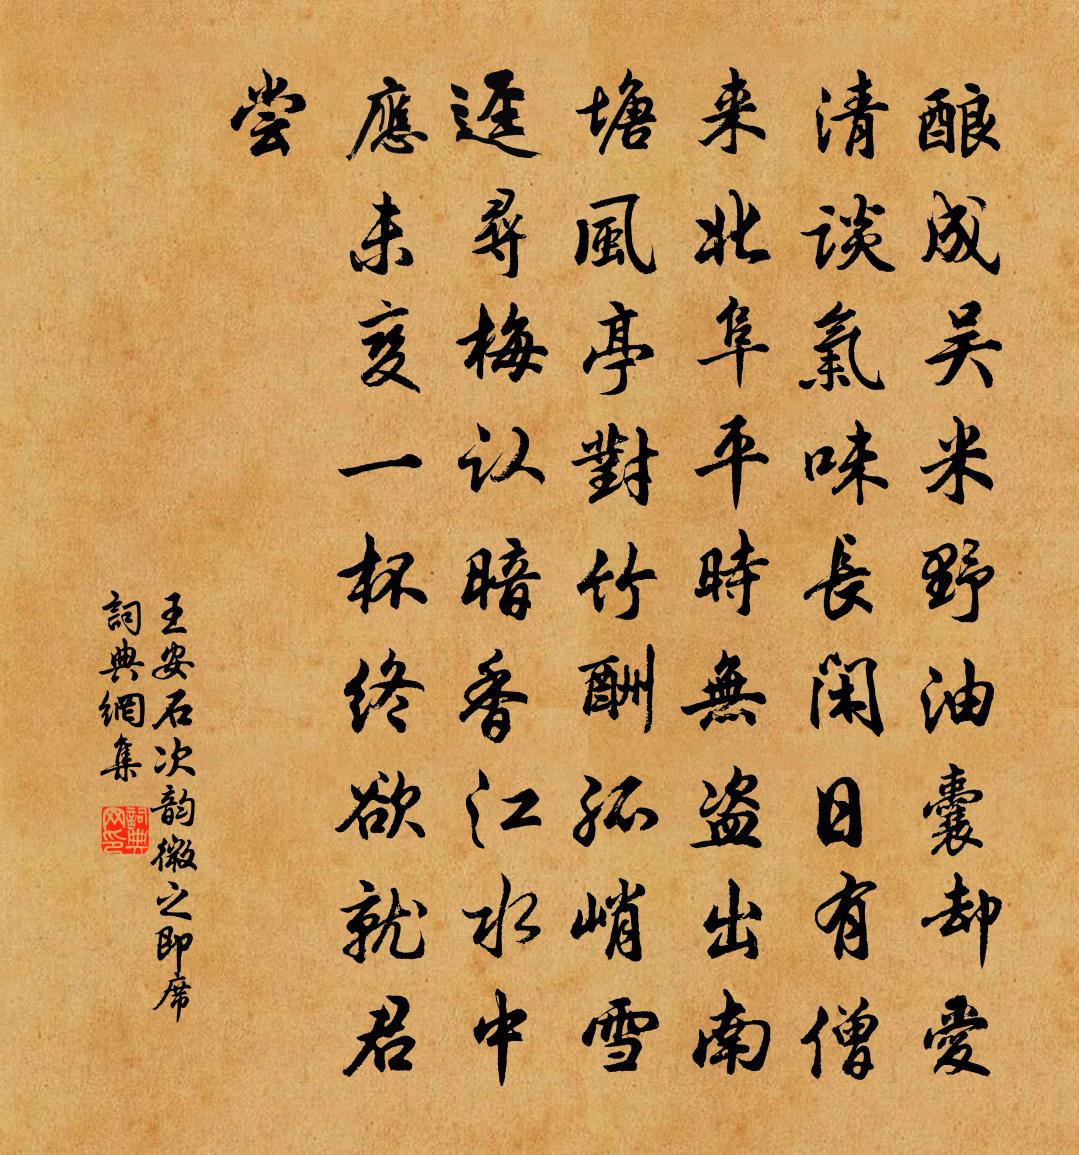 酿成吴米野油囊却愛
清談氣味長閑日有僧
来北阜平時無盜出南
塘風亭對竹酬孤峭雪
逕尋梅认暗香江水中
應未变一杯终欲就君
尝
王安石次韵微之即席
詞典網集
詞典网印